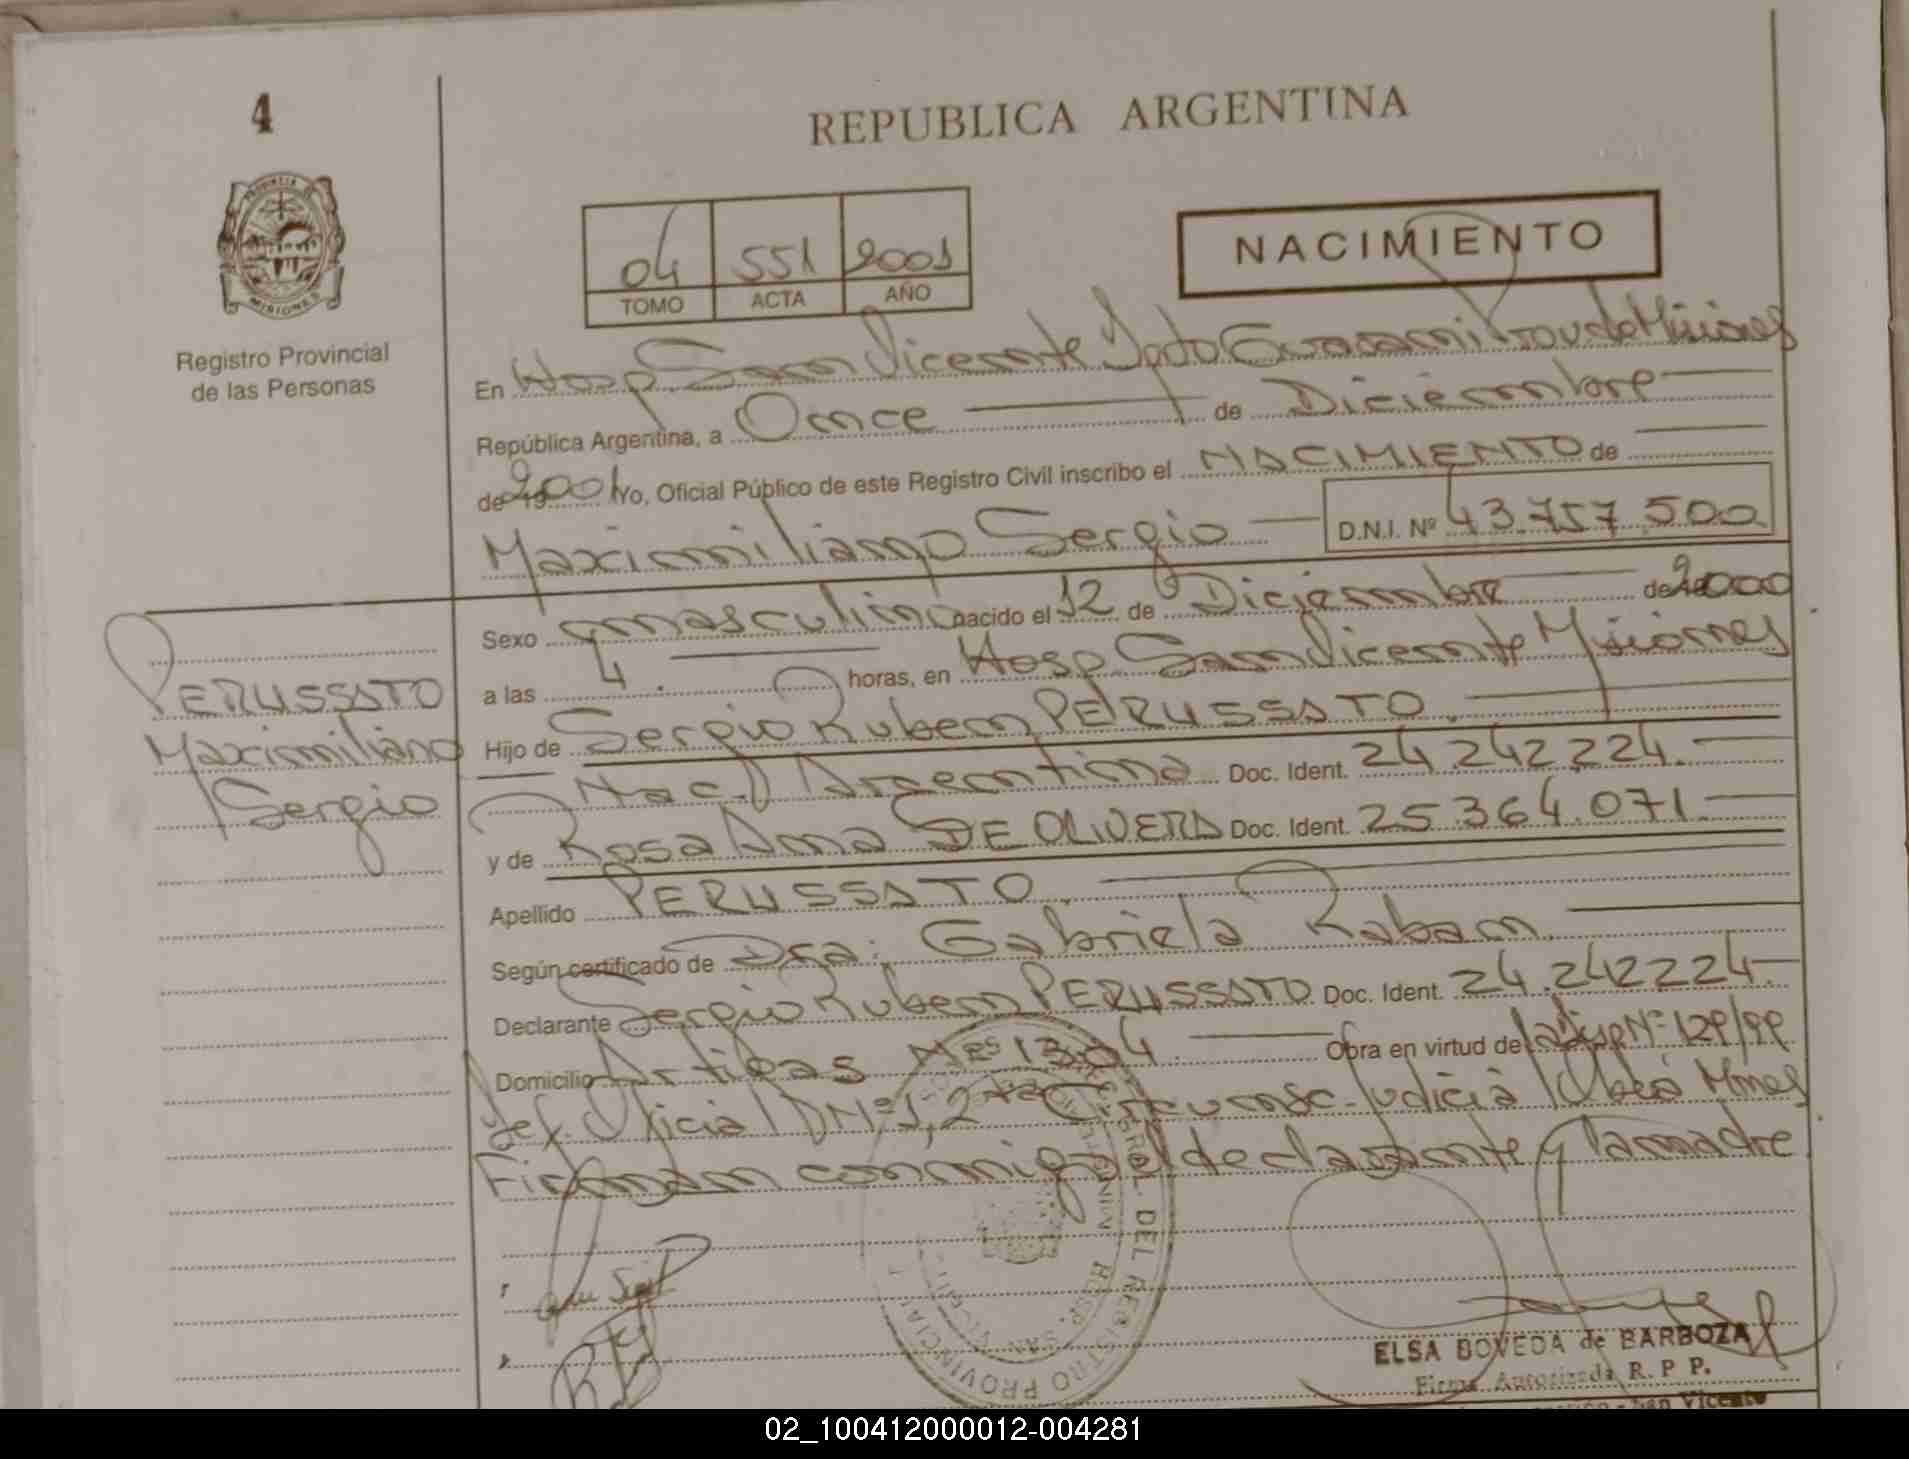 4
REPUBLICA ARGENTINA
PROVINCIA DE
MISIONES
Registro Provincial
de las Personas
04 551 2001
TOMO ACTA AÑO
NACIMIENTO
En Hosp San Vicente Dpto Guarani Prov. de Misiones
República Argentina, a Once de Diciembre
de 2001 Yo, Oficial Público de este Registro Civil inscribo el NACIMIENTO de
Maximiliano Sergio D.N.I. Nº 43.757.500
Sexo masculino nacido el 12 de Diciembre de 2000
a las 4. horas, en Hosp San Vicente Misiones
PERUSSATO
Maximiliano
Sergio
Hijo de Sergio Ruben PERUSSATO.
Nac. Argentina Doc. Ident. 24.242.224.
y de Rosa Ana DE OLIVERA Doc. Ident. 25.364.071.
Apellido PERUSSATO.
Según certificado de Dra: Gabriela Raban.
Declarante Sergio Ruben PERUSSATO Doc. Ident. 24.242224.
Domicilio Artigas 1304. Obra en virtud de la Nº 129/99
Def. Oficial Nº 1, 2da Circunsc. Judicial Oberá Mnes
Firman conmigo el declarante y la madre
ELSA BOVEDA de BARBOZA
Firma Autorizada R. P. P.
San Vicente
DEL REGISTRO PROVINCIAL
HOSP. SAN VICENTE
02_100412000012-004281